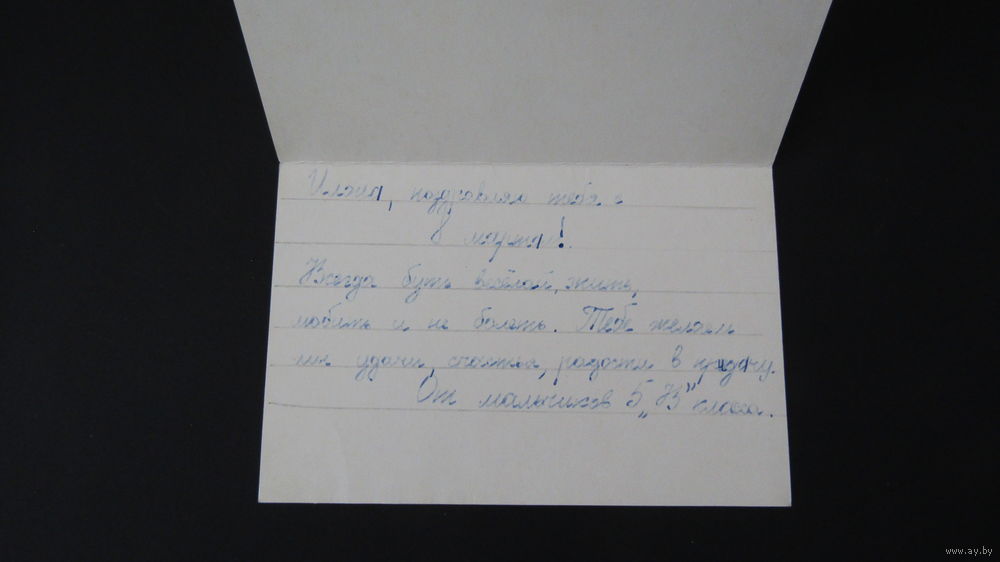 поздравляем тебя с
8 марта!
Всегда быть весёлой, жить,
любить и не болеть. Тебе желаем
мы удачи, счастья, радости в придачу.
От мальчиков 5 „В" класса.
www.ay.by